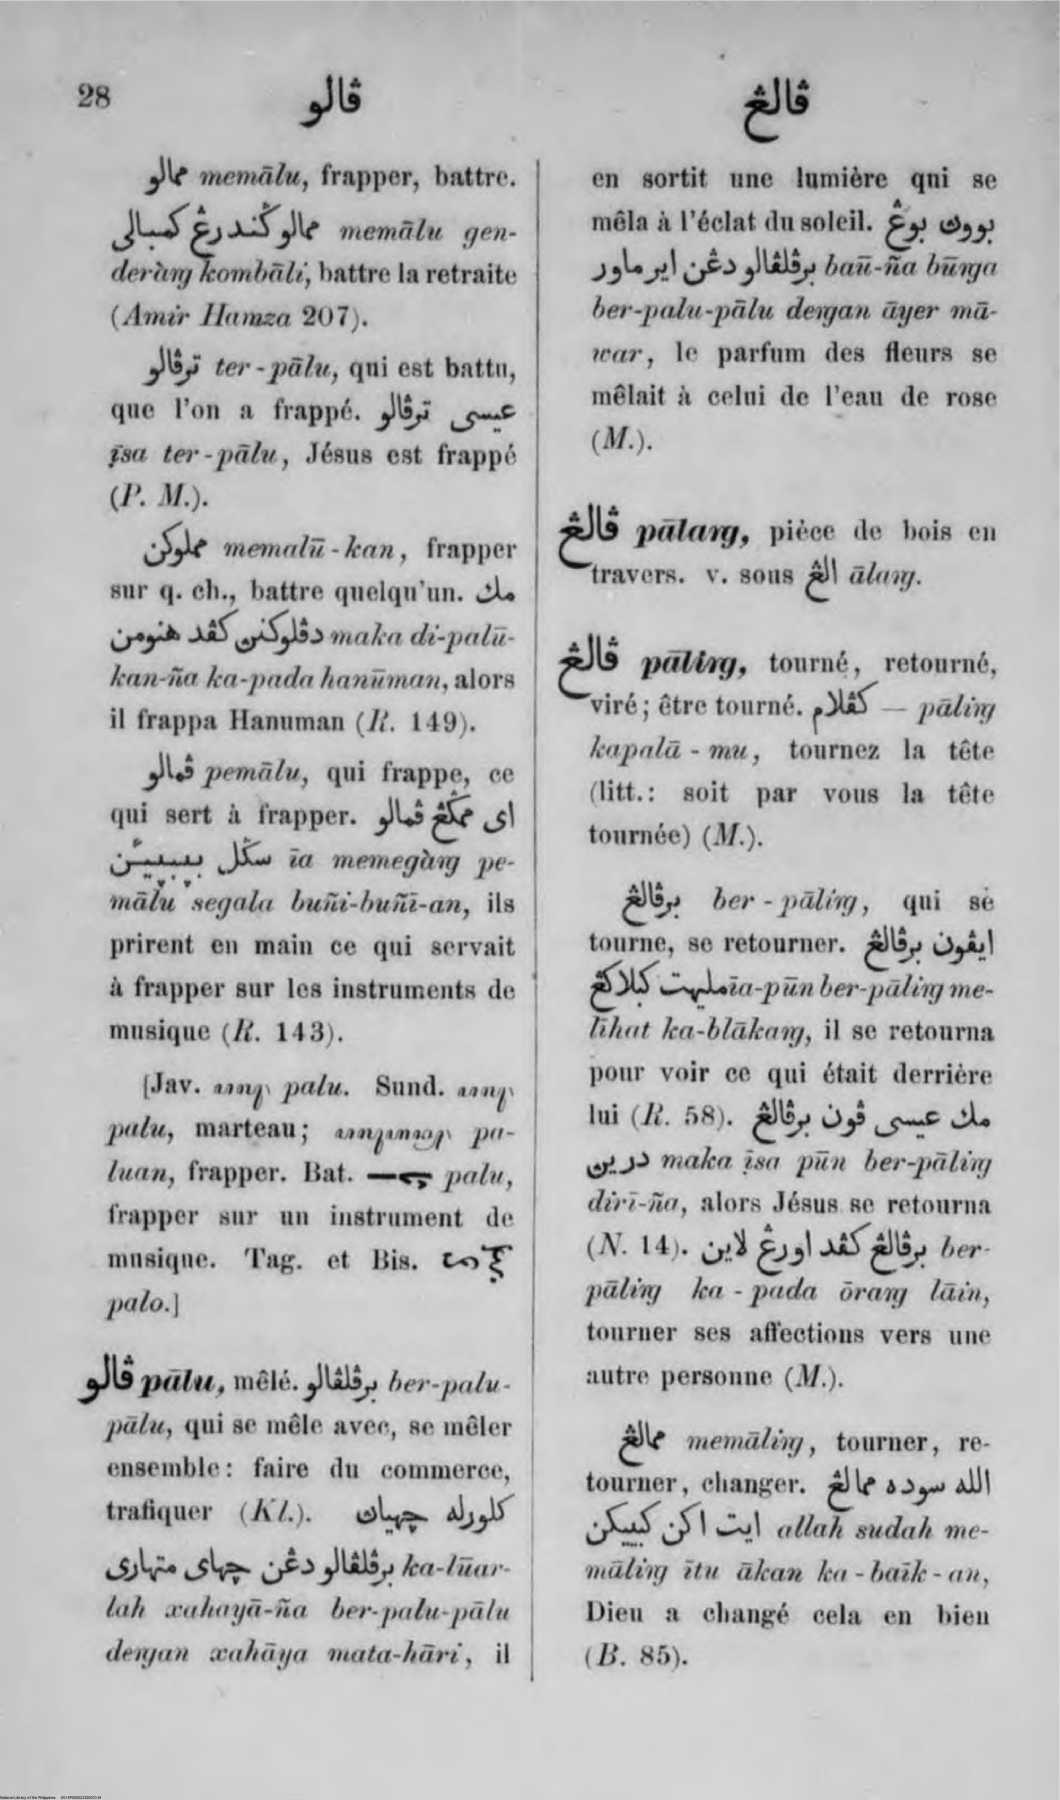 28 ڤالو ڤالڠ
ممالو memālu, frapper, battre.
ممالو ڬندرڠ کمبالي memālu gen-
deràrg kombāli, battre la retraite
(Amir Hamza 207).
ترڤالو ter-pālu, qui est battu,
que l'on a frappé. عيسى ترڤالو
īsa ter-pālu, Jésus est frappé
(P. M.).
مملوکن memalū-kan, frapper
sur q. ch., battre quelqu'un. مك
دڤلوکنن کڤد هنومن maka di-palū-
kan-ña ka-pada hanūman, alors
il frappa Hanuman (R. 149).
ڤمالو pemālu, qui frappe, ce
qui sert à frapper. اى ممڬڠ ڤمالو
سڬل īa memegàrg pe-
mālu segala buñi-buñī-an, ils
prirent en main ce qui servait
à frapper sur les instruments de
musique (R. 143).
[Jav. palu. Sund.
palu, marteau; pa-
luan, frapper. Bat. palu,
frapper sur un instrument de
musique. Tag. et Bis.
palo.]
ڤالو pālu, mêlé. برڤلڤالو ber-palu-
pālu, qui se mêle avec, se mêler
ensemble: faire du commerce,
trafiquer (Kl.). کلورله چهيان
برڤلڤالو دڠن چهاى متهارى ka-lūar-
lah xahayā-ña ber-palu-pālu
dergan xahāya mata-hāri, il
en sortit une lumière qui se
mêla à l'éclat du soleil. بوون بوڠ
برڤلڤالو دڠن اير ماور baū-ña būrga
ber-palu-pālu dergan āyer mā-
war, le parfum des fleurs se
mêlait à celui de l'eau de rose
(M.).
ڤالڠ pālarg, pièce de bois en
travers. v. sous الڠ ālarg.
ڤالڠ pālirg, tourné, retourné,
viré; être tourné. کڤلام — pālirg
kapalā-mu, tournez la tête
(litt.: soit par vous la tête
tournée) (M.).
برڤالڠ ber-pālirg, qui se
tourne, se retourner. ايڤون برڤالڠ
مليهت کبلاکڠ īa-pūn ber-pālirg me-
līhat ka-blākarg, il se retourna
pour voir ce qui était derrière
lui (R. 58). مك عيسى ڤون برڤالڠ
درين maka īsa pūn ber-pālirg
dirī-ña, alors Jésus se retourna
(N. 14). برڤالڠ کڤد اورڠ لاين ber-
pālirg ka-pada ōrarg lāin,
tourner ses affections vers une
autre personne (M.).
ممالڠ memālirg, tourner, re-
tourner, changer. الله سوده ممالڠ
ايت اکن کبييکن allah sudah me-
mālirg ītu ākan ka-baīk-an,
Dieu a changé cela en bien
(B. 85).